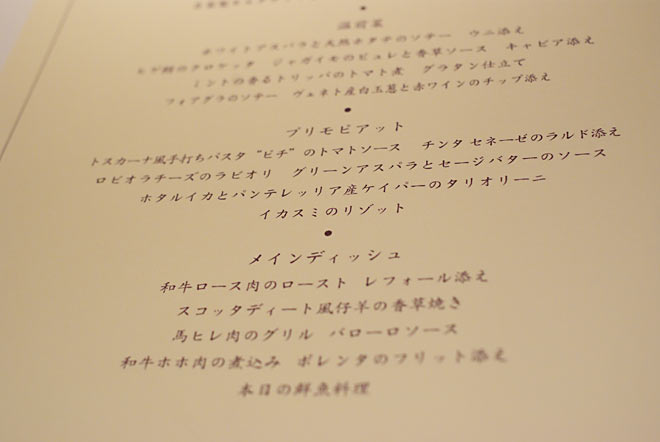 温前菜
ホワイトアスパラと天然ホタテのソテー　ウニ添え
ヒゲ鱈のクロケッタ　ジャガイモのピュレと香草ソース　キャビア添え
ミントの香るトリッパのトマト煮　グラタン仕立て
フォアグラのソテー　ヴェネト産白玉葱と赤ワインのチップ添え
プリモピアット
トスカーナ風手打ちパスタ “ピチ” のトマトソース　チンタ セネーゼのラルド添え
ロビオラチーズのラビオリ　グリーンアスパラとセージバターのソース
ホタルイカとパンテレッリア産ケイパーのタリオリーニ
イカスミのリゾット
メインディッシュ
和牛ロース肉のロースト　レフォール添え
スコッタディート風仔羊の香草焼き
馬ヒレ肉のグリル　バローロソース
和牛ホホ肉の煮込み　ポレンタのフリット添え
本日の鮮魚料理